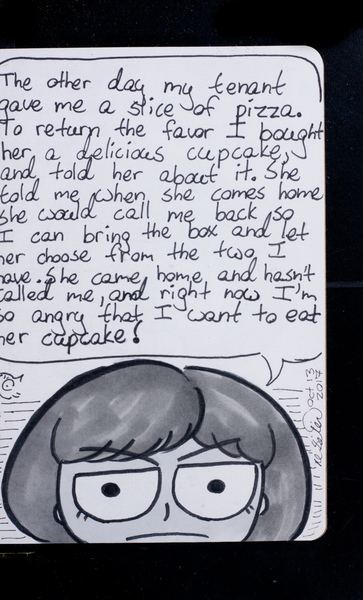 The other day my tenant
gave me a slice of pizza.
To return the favor I bought
her a delicious cupcake,
and told her about it. She
told me when she comes home
she would call me back so
I can bring the box and let
her choose from the two I
have. She came home, and hasn't
called me, and right now I'm
so angry that I want to eat
her cupcake!
oct 13
2017